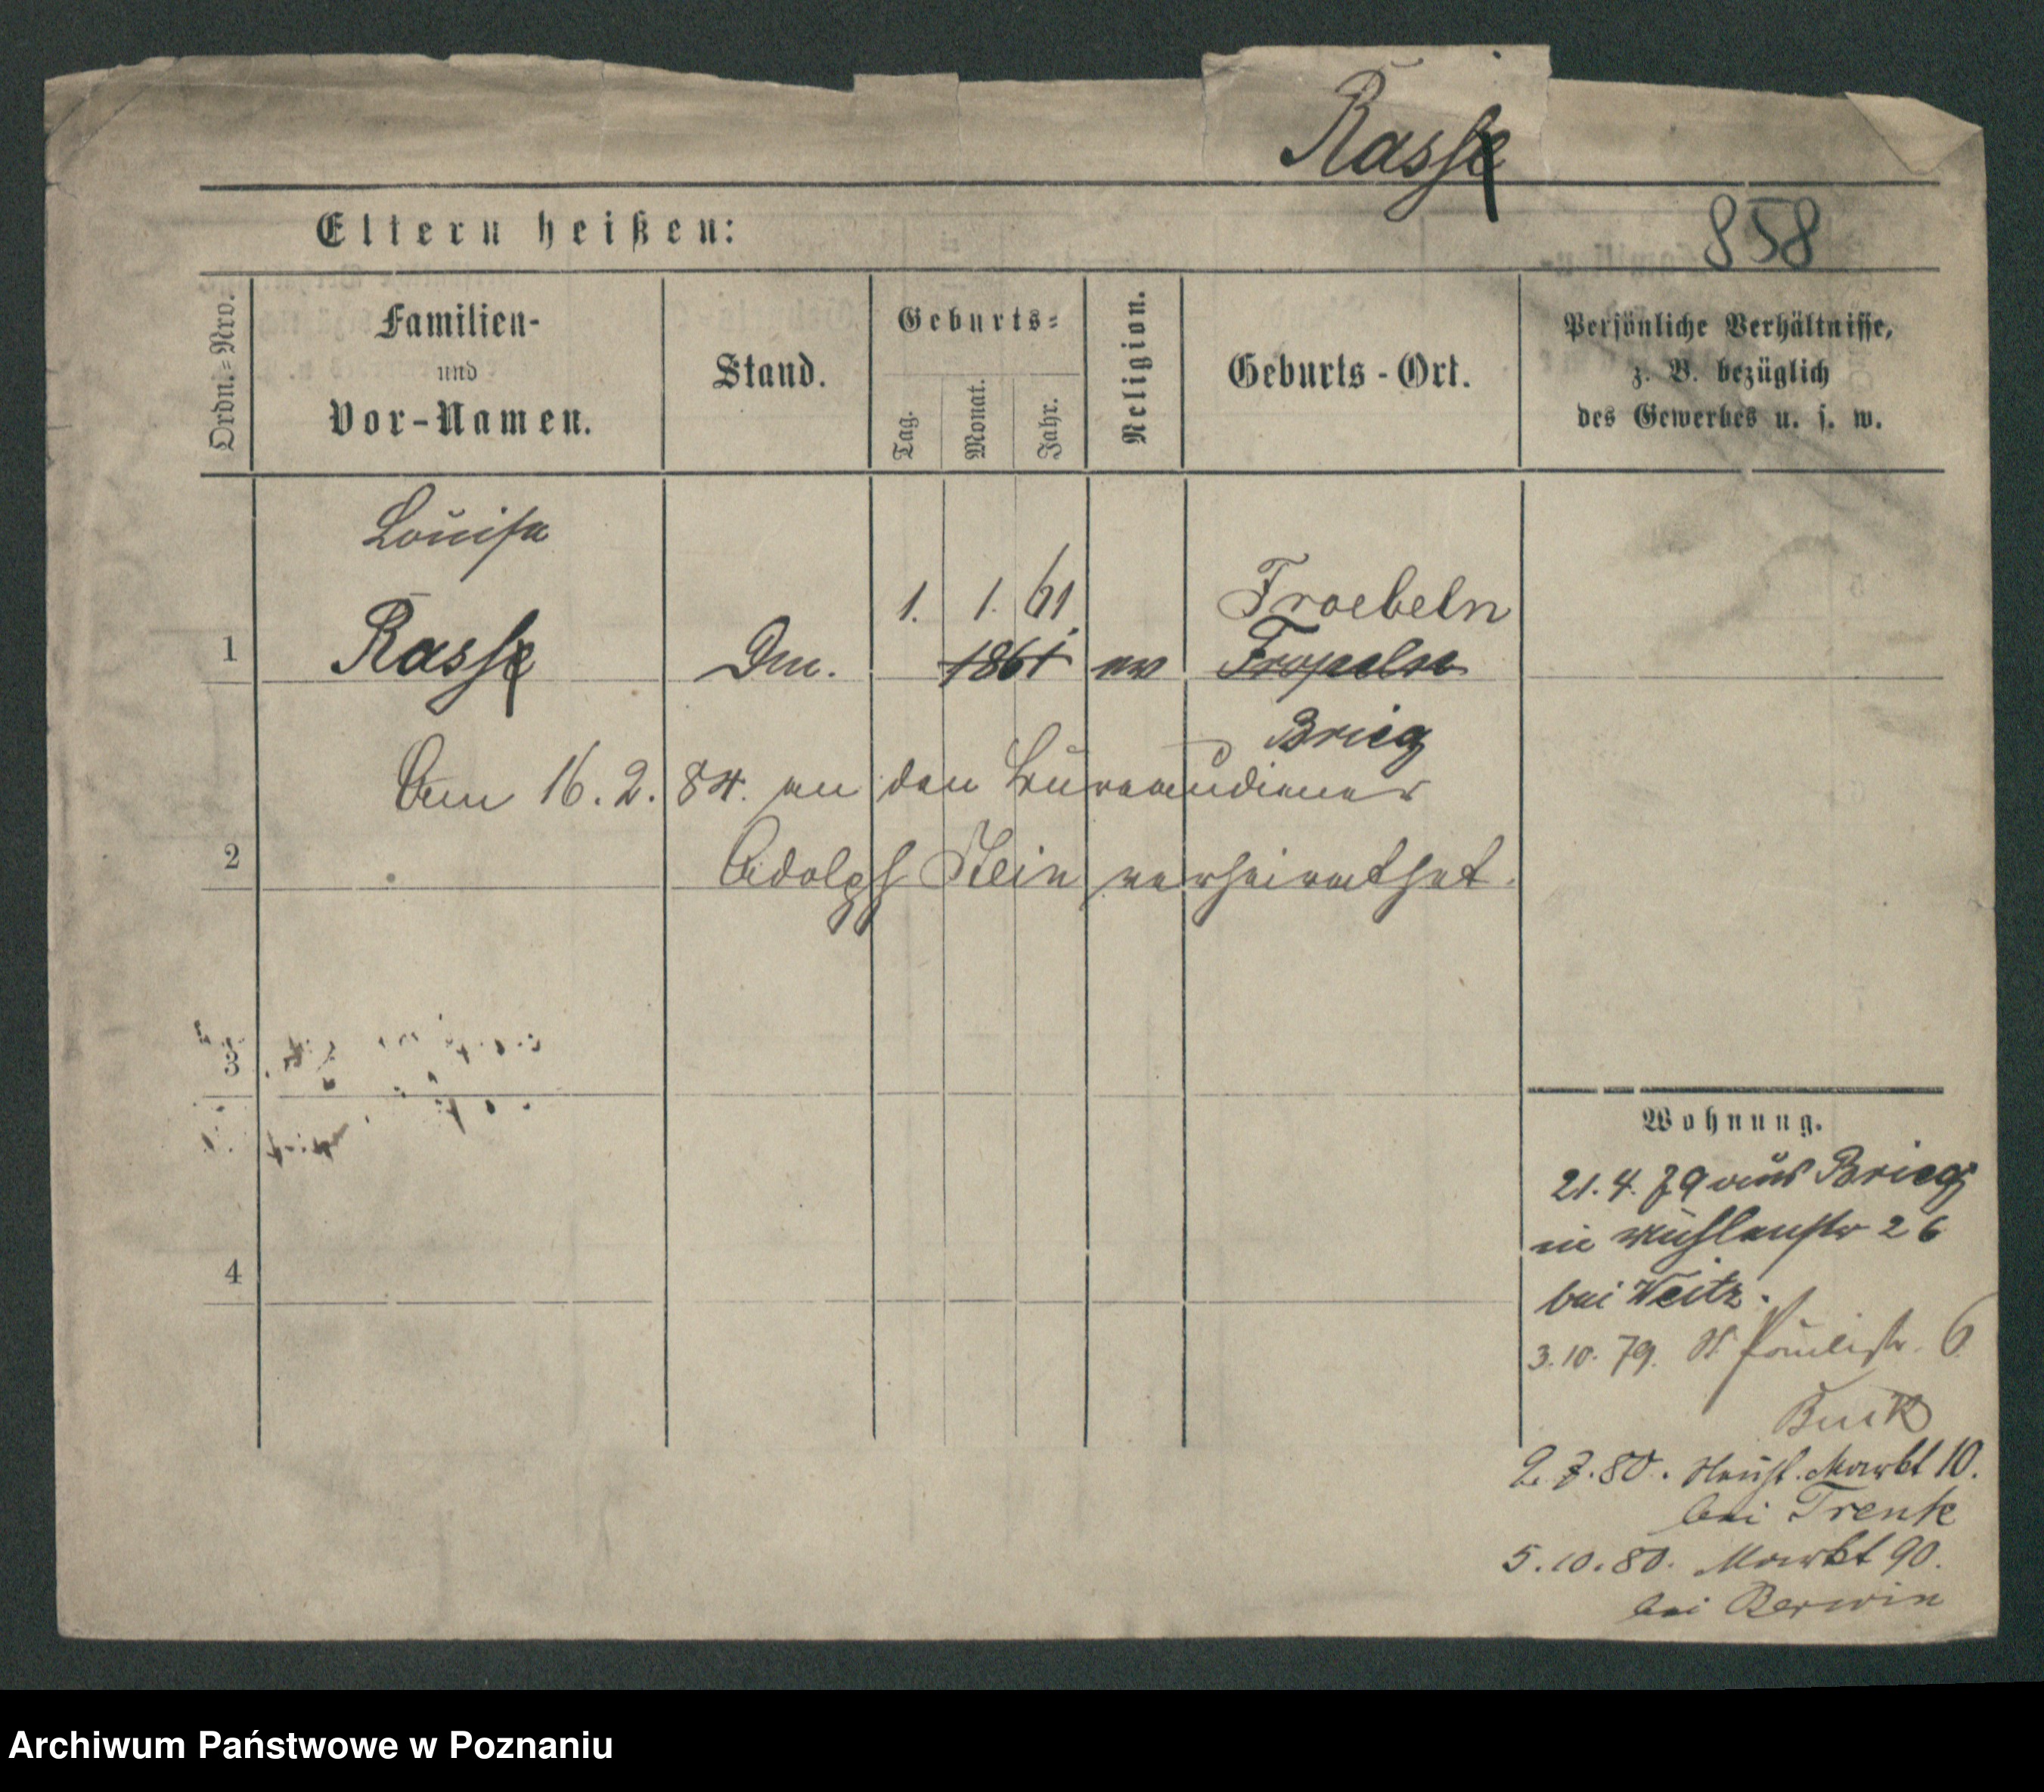 Rasse
Eltern heißen:
858
Ordn.=Nro.
Familien-
und
Vor-Namen.
Stand.
Geburts=
Tag.
Monat.
Jahr.
Religion.
Geburts-Ort.
Persönliche Verhältnisse,
z. B. bezüglich
des Gewerbes u. s. w.
Louise
1. 1. 61.
Froebeln
1 Rasse Dm. 1861 ev
Brieg
Am 16. 2. 84. an den Bureaudiener
2 Adolph Stein verheirathet.
3
Wohnung.
21. 4. 79 aus Brieg
in Mühlenstr 26
4
bei Weitz.
3. 10. 79. St. Paulistr. 6
Buck
2. 7. 80. Neust. Markt 10.
bei Trenk
5. 10. 80. Markt 90.
bei Berwin
Archiwum Państwowe w Poznaniu